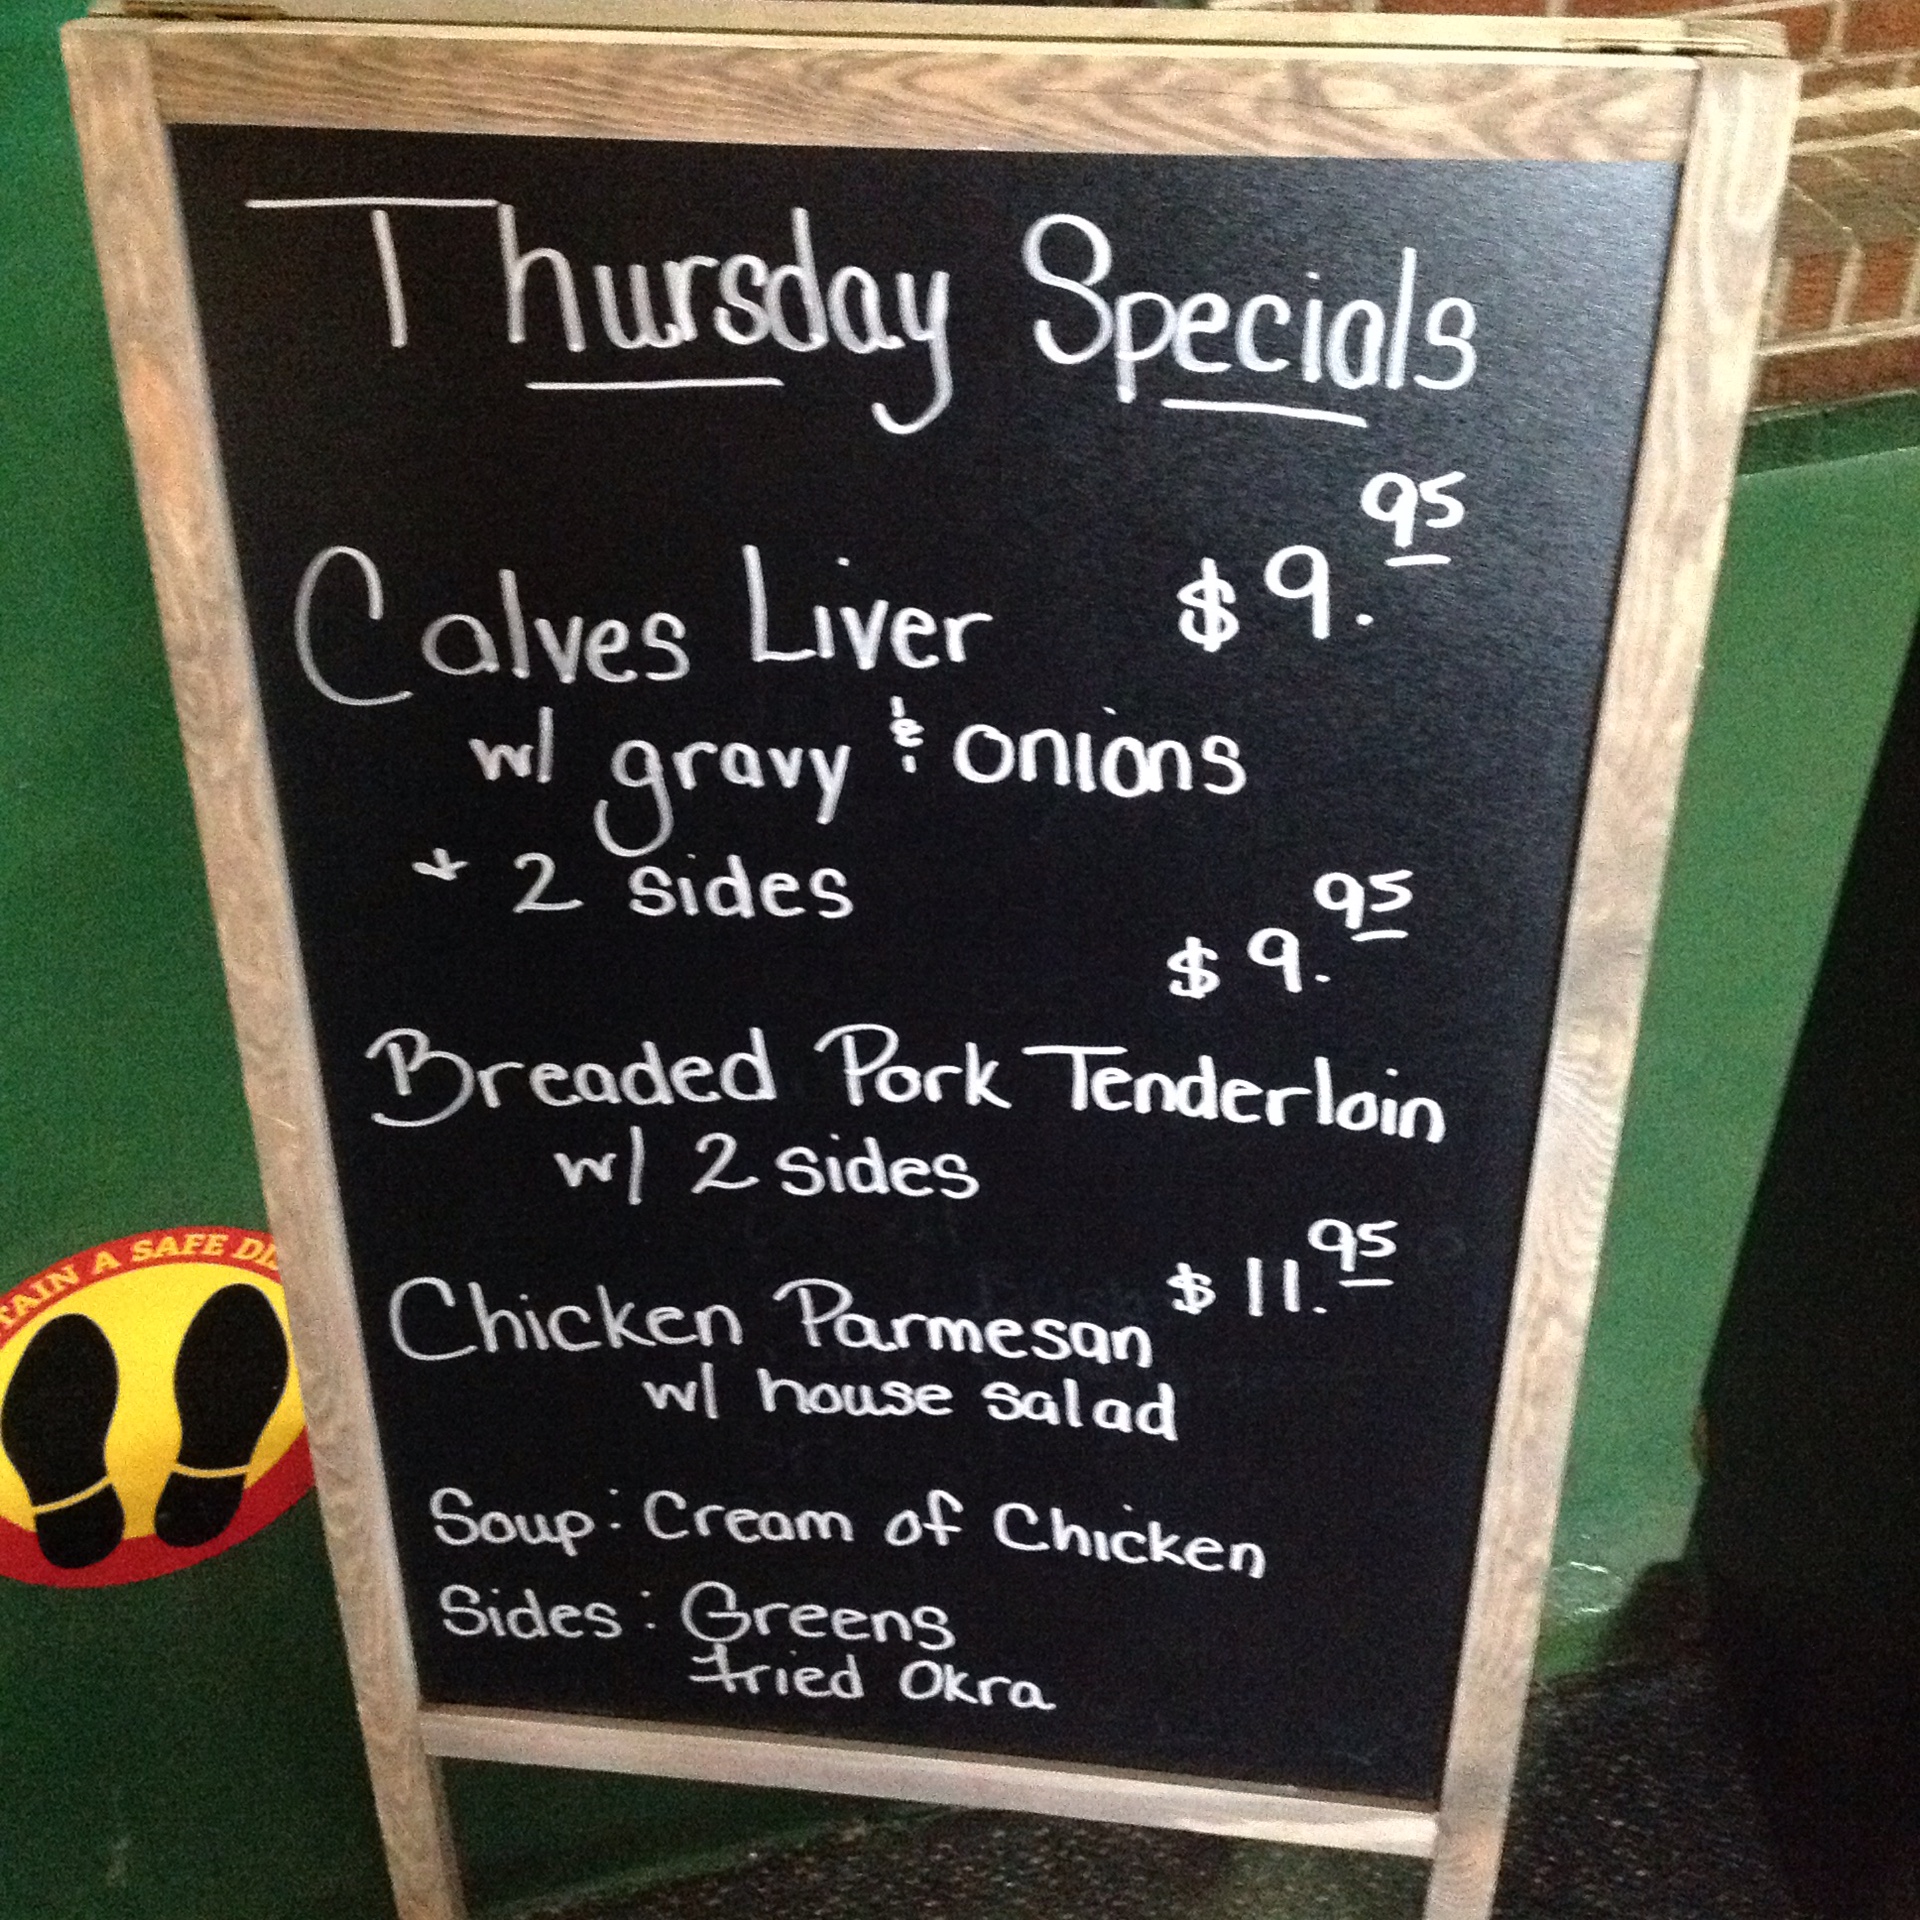 Thursday Specials
Calves Liver $9.95
w/ gravy & onions
+ 2 sides
$9.95
Breaded Pork Tenderloin
w/ 2 sides
Chicken Parmesan $11.95
w/ house salad
Soup: Cream of Chicken
Sides: Greens
fried Okra
A SAFE